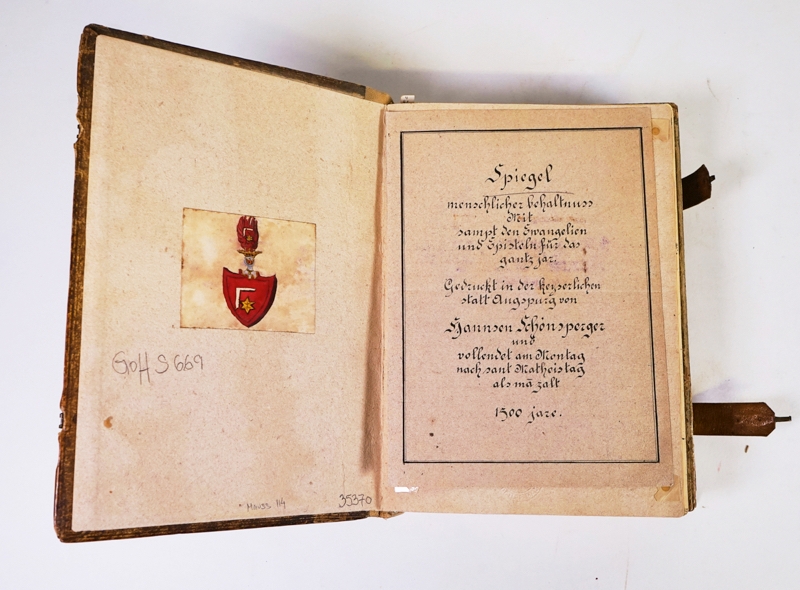 GoH S 669
Mauss 114
35370
Spiegel
menschlicher behaltnuss
Mit
sampt den Ewangelien
und Episteln für das
gantz jar.
Gedruckt in der keyserlichen
statt Augspurg von
Hannsen Schönsperger
und
vollendet am Montag
nach sant Matheis tag
als mā zalt
1500 jare.